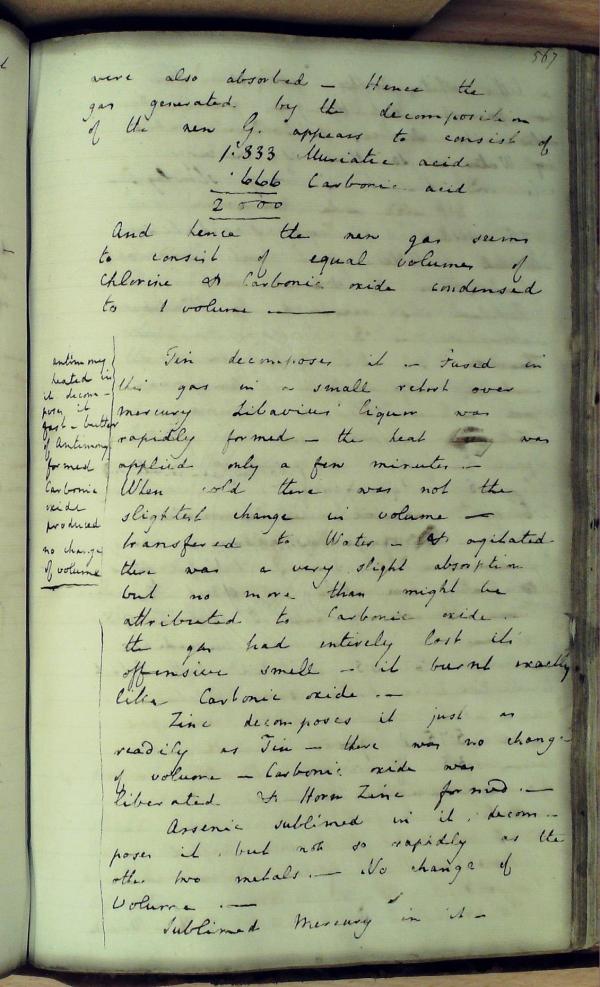 567
were also absorbed — Hence the
gas generated by the decomposition
of the new G. appears to consist of
1.333 Muriatic acid
.666 Carbonic acid
2 000
And hence the new gas seems
to consist of equal volumes of
Chlorine & Carbonic oxide condensed
to 1 volume —
Tin decomposes it — Fused in
this gas in a small retort over
mercury Libavius' liquor was
rapidly formed — the heat was
applied only a few minutes —
When cold there was not the
slightest change in volume —
transfered to Water — & agitated
there was a very slight absorption
but no more than might be
attributed to Carbonic oxide.
the gas had entirely lost its
offensive smell — it burnt exactly
like Carbonic oxide. —
Zinc decomposes it just as
readily as Tin — there was no change
of volume — Carbonic oxide was
liberated & Horn Zinc formed. —
Arsenic sublimed in it, decom-
poses it, but not so rapidly as the
other two metals. — No change of
volume. —
Sublimed Mercury in it —
antimony
heated in
it decom-
poses it
fast - butter
of Antimony
formed
Carbonic
oxide
produced
no change
of volume